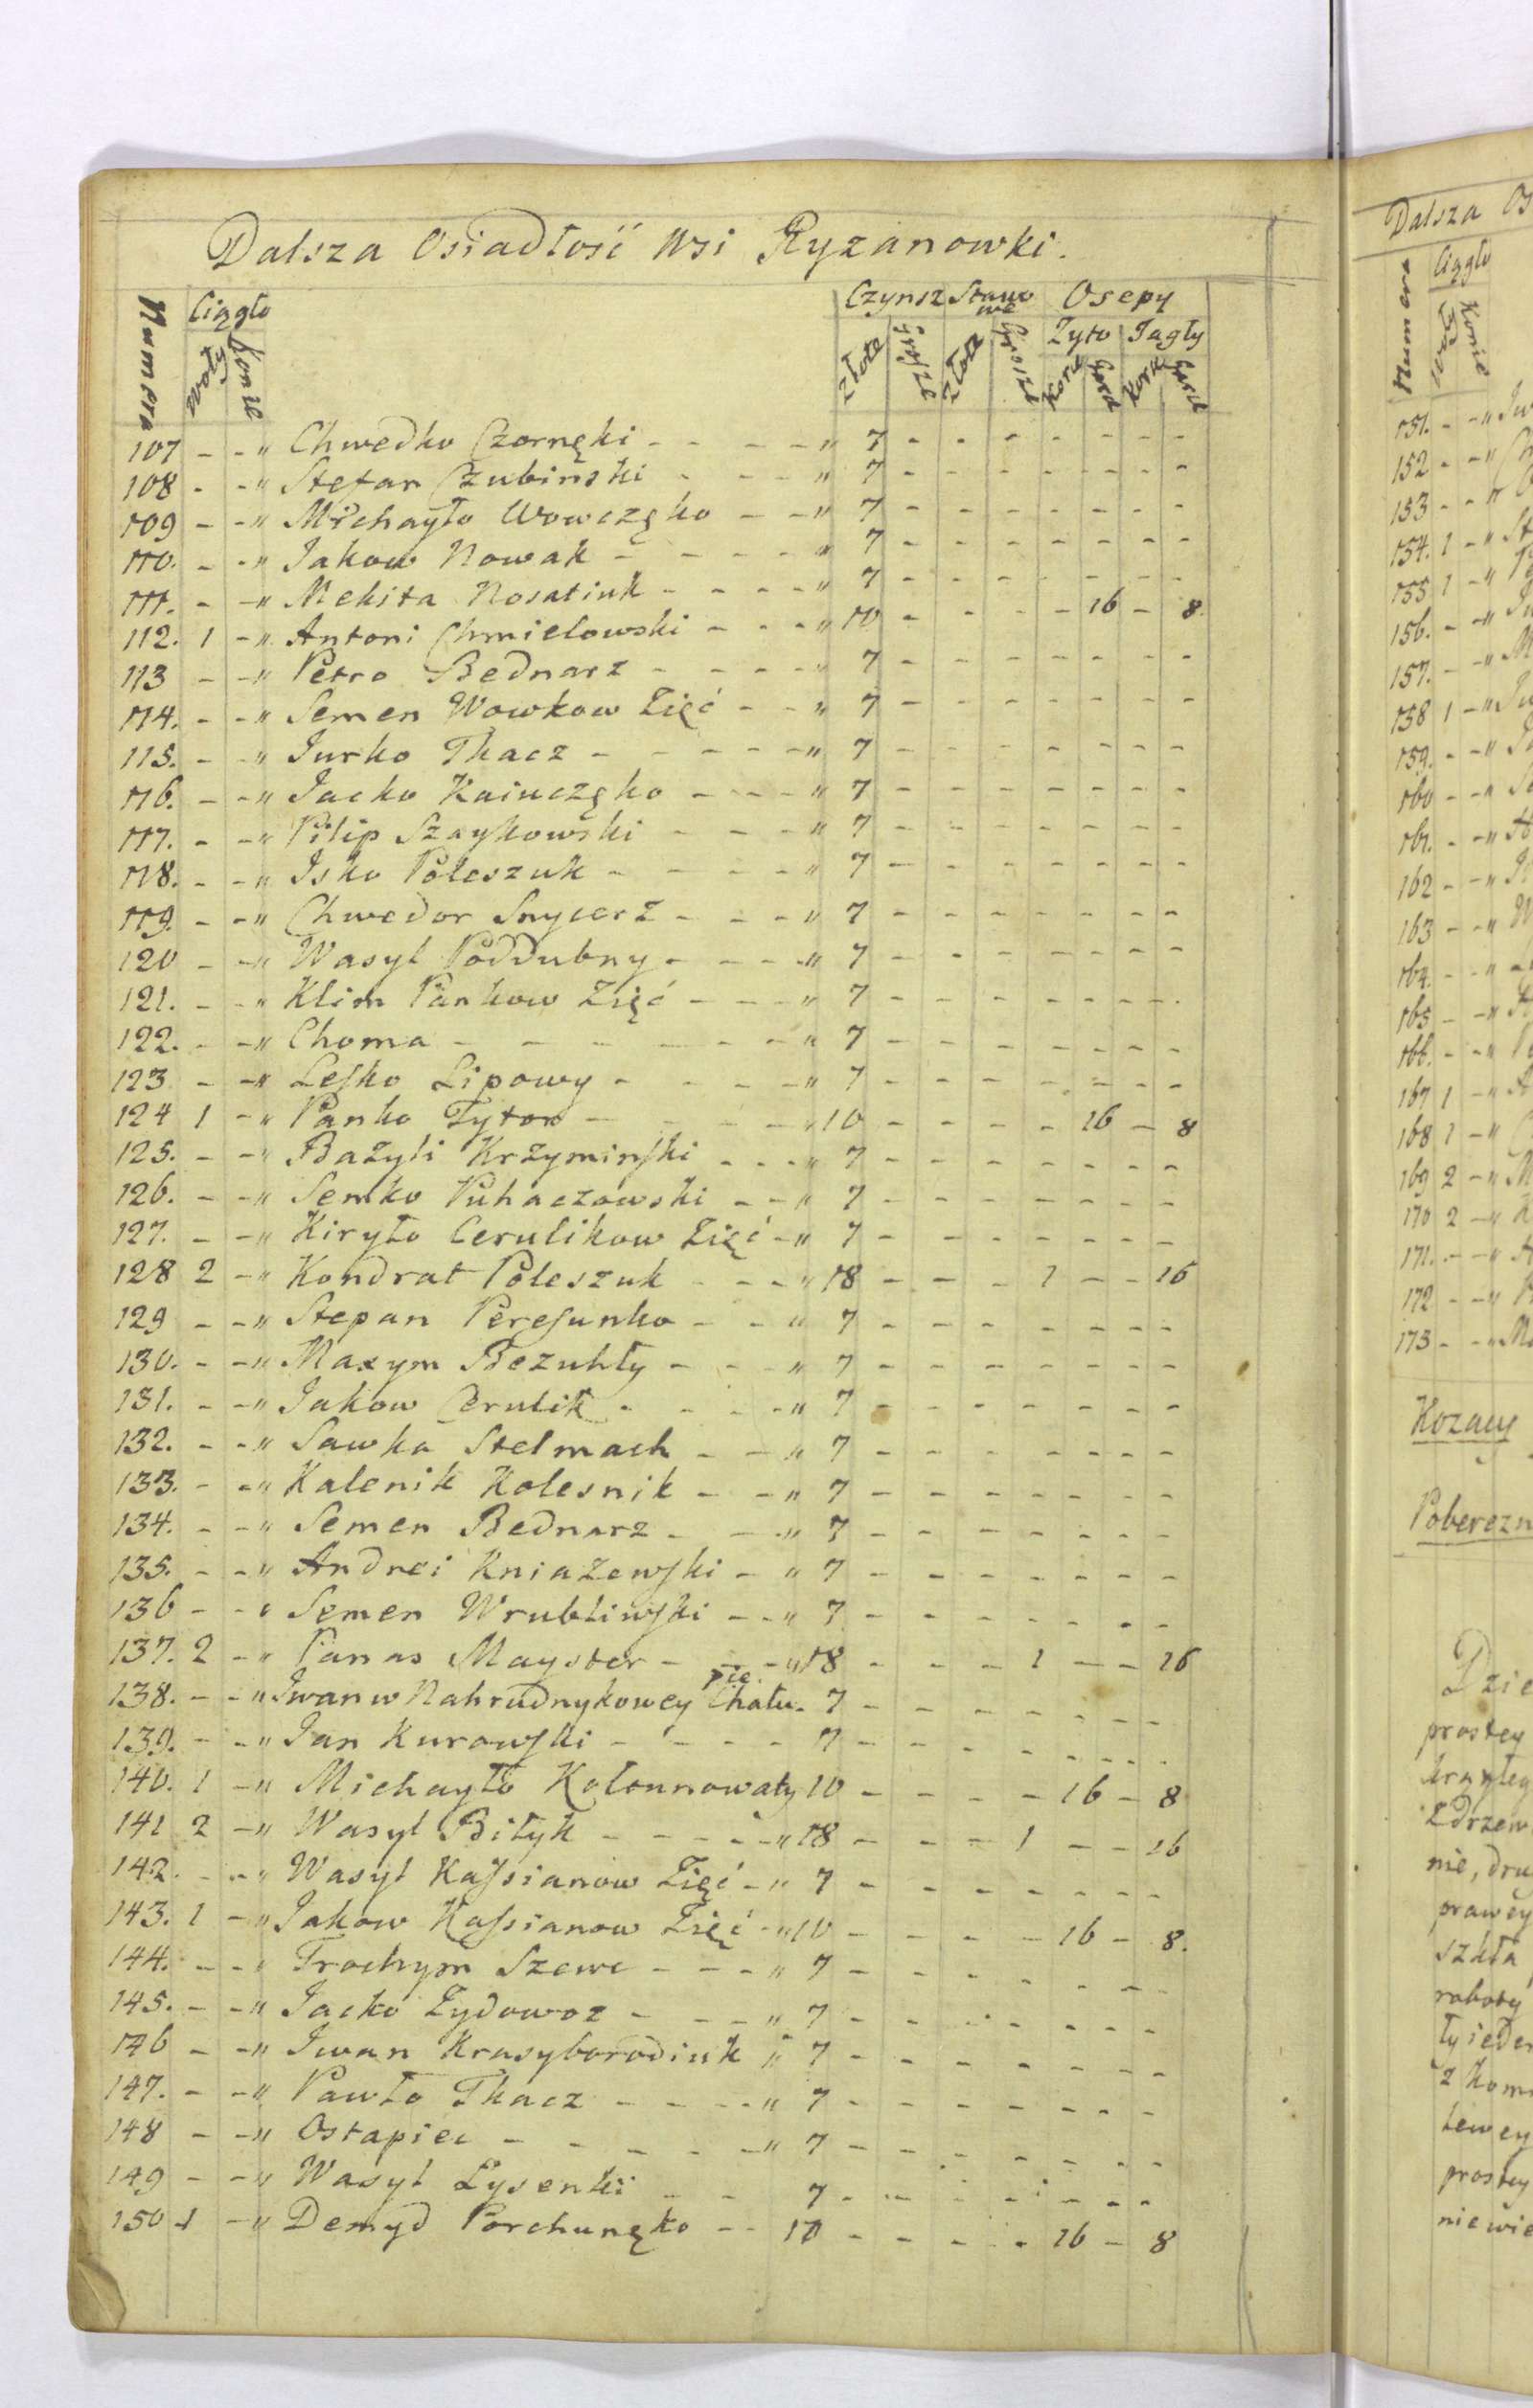 Dalsza Osiadłość Wsi Ryzanowki.
Numera Ciągło Czynsz Stawowe Osepy
Woły Konie Złote Grosze Złote Grosze Żyto Jagły
Korce Garce Korce Garce
107 - - " Chwedko Czornęki - - - - " 7 - - - - - - -
108 - - " Stefan Czubiński - - - " 7 - - - - - - -
109 - - " Michayło Wowczęko - - " 7 - - - - - - -
110. - - " Jakow Nowak - - - - " 7 - - - - - - -
111. - - " Mekita Nosatiuk - - - - " 7 - - - - - - -
112. 1 - " Antoni Chmielowski - - - " 10 - - - - 16 - 8.
113 - - " Petro Bednarz - - - - " 7 - - - - - - -
114. - - " Semen Wowkow Zięć - - " 7 - - - - - - -
115. - - " Jurko Tkacz - - - - - " 7 - - - - - - -
116. - - " Jacko Kainczęko - - - - " 7 - - - - - - -
117. - - " Pilip Szaykowski - - - " 7 - - - - - - -
118. - - " Isko Poleszuk - - - - " 7 - - - - - - -
119. - - " Chwedor Snycerz - - - " 7 - - - - - - -
120 - - " Wasyl Poddubny - - - - " 7 - - - - - - -
121. - - " Klim Pankow Zięć - - - " 7 - - - - - - -
122. - - " Choma - - - - - - - " 7 - - - - - - -
123 - - " Leſko Lipowy - - - - " 7 - - - - - - -
124 1 - " Panko Tyton - - - " 10 - - - - 16 - 8
125. - - " Bażyli Krzyminſki - - - " 7 - - - - - - -
126. - - " Semko Puhaczowski - - " 7 - - - - - - -
127. - - " Kiryło Cerulikow Zięć - " 7 - - - - - - -
128 2 - " Kondrat Poleszuk - - - " 18 - - - 1 - - 16
129 - - " Stepan Pereſunko - - " 7 - - - - - - -
130. - - " Maxym Bezuhły - - - " 7 - - - - - - -
131. - - " Jakow Cerulik - - - - " 7 - - - - - - -
132. - - " Sawka Stelmach - - " 7 - - - - - - -
133. - - " Kalenik Kolesnik - - " 7 - - - - - - -
134. - - " Semen Bednarz - - " 7 - - - - - - -
135. - - " Andrei Kniażewſki - " 7 - - - - - - -
136 - - " Semen Wrubliwſki - - " 7 - - - - - - -
137. 2 - " Panas Mayster - - - " 18 - - - 1 - - 16
138. - - " Iwan w Nahrudnykowey Chału- 7 - - - - - - -
pie.
139. - - " Jan Kurowſki - - - - 7 - - - - - - -
140. 1 - " Michayło Kołounowaty 10 - - - - 16 - 8
141 2 - " Wasyl Biłyk - - - - - " 18 - - - 1 - - 16
142. - - " Wasyl Kaſsianow Zięć - " 7 - - - - - - -
143. 1 - " Jakow Kaſsianow Zięć - " 10 - - - - 16 - 8.
144. - - " Trochym Szewc - - - " 7 - - - - - - -
145. - - " Jacko Żydowoz - - - " 7 - - - - - - -
146 - - " Iwan Krasyborodiuk " 7 - - - - - - -
147. - - " Pawło Tkacz - - - - " 7 - - - - - - -
148 - - " Ostapiec - - - - - " 7 - - - - - - -
149 - - " Wasyl Łysenki - - 7 - - - - - - -
150 1 - " Demyd Porchunęko - - 10 - - - - 16 - 8
Dalsza Os
Numera Ciągło
Konie
151. - - " Iw
152 - - "
153 - - "
154. 1 - " St
155 1 - "
156. - - "
157. - - " M
158 1 - "
159. - - "
160 - - "
161. - - "
162 - - "
163 - - " W
164. - - "
165 - - "
166. - - "
167 1 - "
168 1 - "
169 2 - " M
170 2 - "
171. - - "
172 - - "
173 - - " Ma
Kozacy
Poberezn
Dzie
prostey
krzyłey
Zdrzew
nie, dru
prawey
szkła
roboty
ty ieden
z Kom
lewey
prostey
nie wie